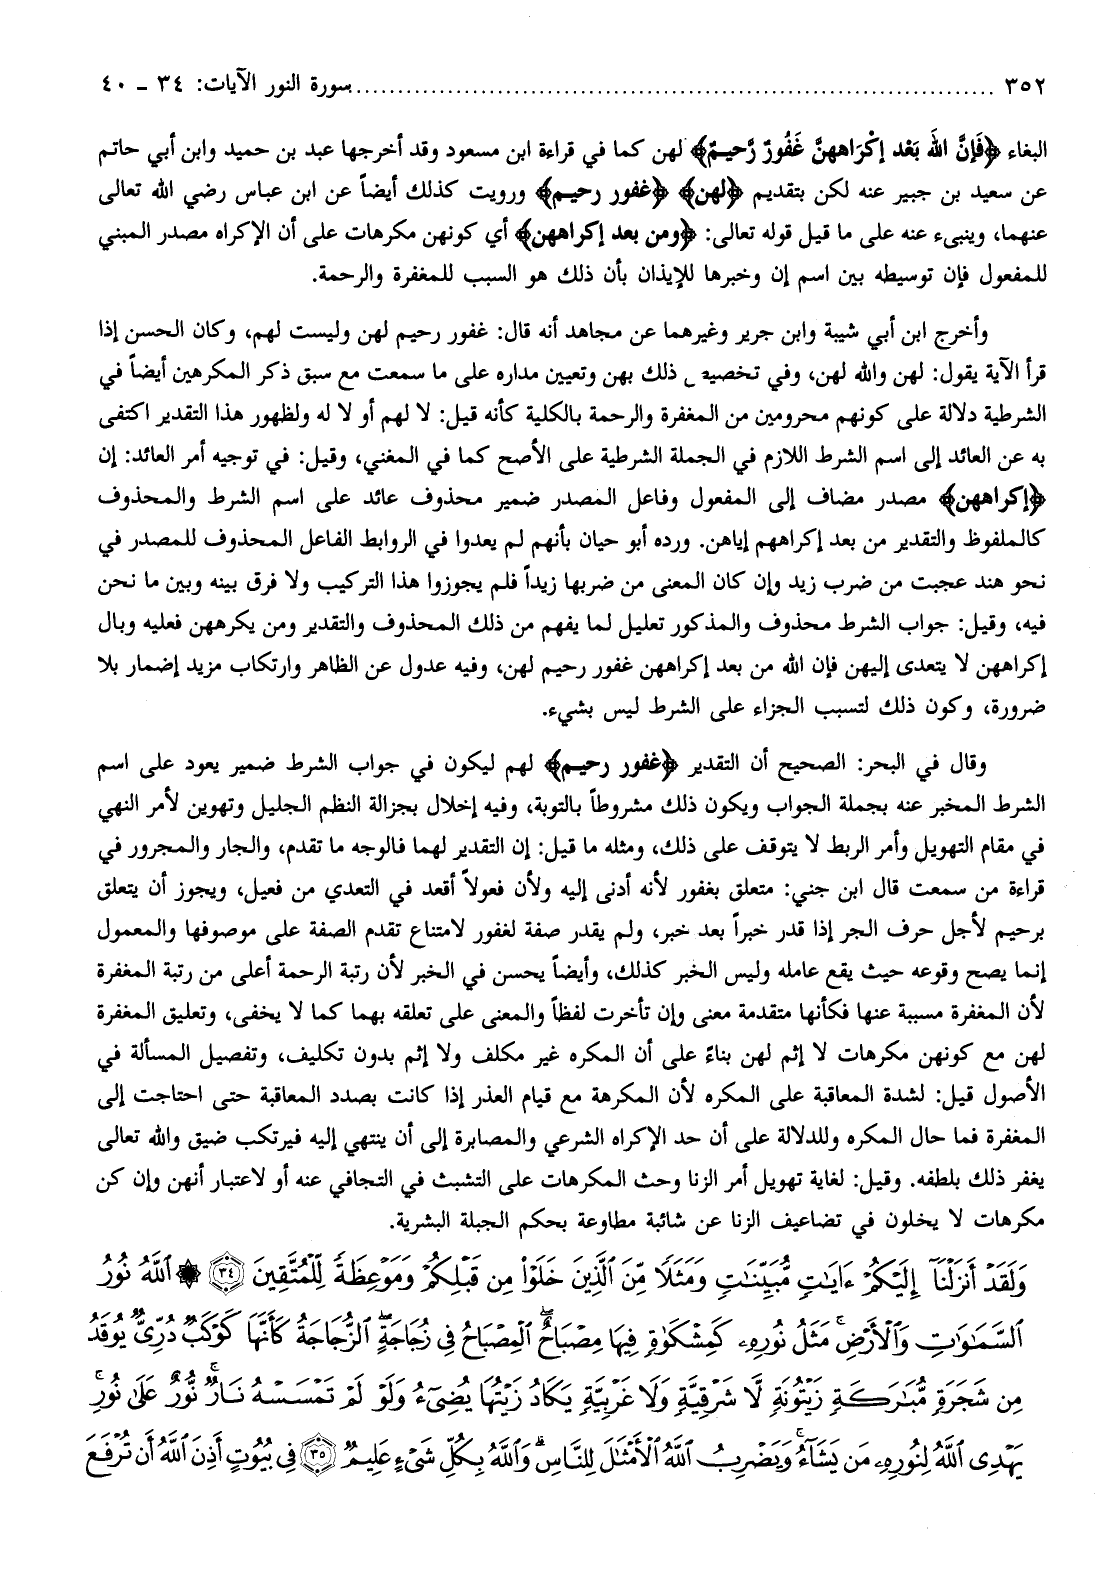 ٣٥٢ ............................................................ سورة النور الآيات: ٣٤ - ٤٠
البغاء ﴿فَإِنَّ اللهَ بَعْد إِكْرَاههنَّ غَفُورٌ رَّحيمٌ﴾ لهن كما في قراءة ابن مسعود وقد أخرجها عبد بن حميد وابن أبي حاتم
عن سعيد بن جبير عنه لكن بتقديم ﴿لهن﴾ ﴿غفور رحيم﴾ ورويت كذلك أيضاً عن ابن عباس رضي الله تعالى
عنهما، وينبىء عنه على ما قيل قوله تعالى: ﴿ومن بعد إكراههن﴾ أي كونهن مكرهات على أن الإكراه مصدر المبني
للمفعول فإن توسيطه بين اسم إن وخبرها للإيذان بأن ذلك هو السبب للمغفرة والرحمة.
وأخرج ابن أبي شيبة وابن جرير وغيرهما عن مجاهد أنه قال: غفور رحيم لهن وليست لهم، وكان الحسن إذا
قرأ الآية يقول: لهن والله لهن، وفي تخصيص ذلك بهن وتعيين مداره على ما سمعت مع سبق ذكر المكرهين أيضاً في
الشرطية دلالة على كونهم محرومين من المغفرة والرحمة بالكلية كأنه قيل: لا لهم أو لا له ولظهور هذا التقدير اكتفى
به عن العائد إلى اسم الشرط اللازم في الجملة الشرطية على الأصح كما في المغني، وقيل: في توجيه أمر العائد: إن
﴿إكراههن﴾ مصدر مضاف إلى المفعول وفاعل المصدر ضمير محذوف عائد على اسم الشرط والمحذوف
كالملفوظ والتقدير من بعد إكراههم إياهن. ورده أبو حيان بأنهم لم يعدوا في الروابط الفاعل المحذوف للمصدر في
نحو هند عجبت من ضرب زيد وإن كان المعنى من ضربها زيداً فلم يجوزوا هذا التركيب ولا فرق بينه وبين ما نحن
فيه، وقيل: جواب الشرط محذوف والمذكور تعليل لما يفهم من ذلك المحذوف والتقدير ومن يكرههن فعليه وبال
إكراههن لا يتعدى إليهن فإن الله من بعد إكراههن غفور رحيم لهن، وفيه عدول عن الظاهر وارتكاب مزيد إضمار بلا
ضرورة، وكون ذلك لتسبب الجزاء على الشرط ليس بشيء.
وقال في البحر: الصحيح أن التقدير ﴿غفور رحيم﴾ لهم ليكون في جواب الشرط ضمير يعود على اسم
الشرط المخبر عنه بجملة الجواب ويكون ذلك مشروطاً بالتوبة، وفيه إخلال بجزالة النظم الجليل وتهوين لأمر النهي
في مقام التهويل وأمر الربط لا يتوقف على ذلك، ومثله ما قيل: إن التقدير لهما فالوجه ما تقدم، والجار والمجرور في
قراءة من سمعت قال ابن جني: متعلق بغفور لأنه أدنى إليه ولأن فعولاً أقعد في التعدي من فعيل، ويجوز أن يتعلق
برحيم لأجل حرف الجر إذا قدر خبراً بعد خبر، ولم يقدر صفة لغفور لامتناع تقدم الصفة على موصوفها والمعمول
إنما يصح وقوعه حيث يقع عامله وليس الخبر كذلك، وأيضاً يحسن في الخبر لأن رتبة الرحمة أعلى من رتبة المغفرة
لأن المغفرة مسببة عنها فكأنها متقدمة معنى وإن تأخرت لفظاً والمعنى على تعلقه بهما كما لا يخفى، وتعليق المغفرة
لهن مع كونهن مكرهات لا إثم لهن بناءً على أن المكره غير مكلف ولا إثم بدون تكليف، وتفصيل المسألة في
الأصول قيل: لشدة المعاقبة على المكره لأن المكرهة مع قيام العذر إذا كانت بصدد المعاقبة حتى احتاجت إلى
المغفرة فما حال المكره وللدلالة على أن حد الإكراه الشرعي والمصابرة إلى أن ينتهي إليه فيرتكب ضيق والله تعالى
يغفر ذلك بلطفه. وقيل: لغاية تهويل أمر الزنا وحث المكرهات على التشبث في التجافي عنه أو لاعتبار أنهن وإن كن
مكرهات لا يخلون في تضاعيف الزنا عن شائبة مطاوعة بحكم الجبلة البشرية.
وَلَقَدْ أَنزَلْنَآ إِلَيْكُمْ ءَايَٰتٍ مُّبَيِّنَٰتٍ وَمَثَلًا مِّنَ ٱلَّذِينَ خَلَوْا۟ مِن قَبْلِكُمْ وَمَوْعِظَةً لِّلْمُتَّقِينَ ٣٤ ۞ ٱللَّهُ نُورُ
ٱلسَّمَٰوَٰتِ وَٱلْأَرْضِ ۚ مَثَلُ نُورِهِۦ كَمِشْكَوٰةٍ فِيهَا مِصْبَاحٌ ۖ ٱلْمِصْبَاحُ فِى زُجَاجَةٍ ۖ ٱلزُّجَاجَةُ كَأَنَّهَا كَوْكَبٌ دُرِّىٌّ يُوقَدُ
مِن شَجَرَةٍ مُّبَٰرَكَةٍ زَيْتُونَةٍ لَّا شَرْقِيَّةٍ وَلَا غَرْبِيَّةٍ يَكَادُ زَيْتُهَا يُضِىٓءُ وَلَوْ لَمْ تَمْسَسْهُ نَارٌ ۚ نُّورٌ عَلَىٰ نُورٍ ۗ
يَهْدِى ٱللَّهُ لِنُورِهِۦ مَن يَشَآءُ ۚ وَيَضْرِبُ ٱللَّهُ ٱلْأَمْثَٰلَ لِلنَّاسِ ۗ وَٱللَّهُ بِكُلِّ شَىْءٍ عَلِيمٌ ٣٥ فِى بُيُوتٍ أَذِنَ ٱللَّهُ أَن تُرْفَعَ